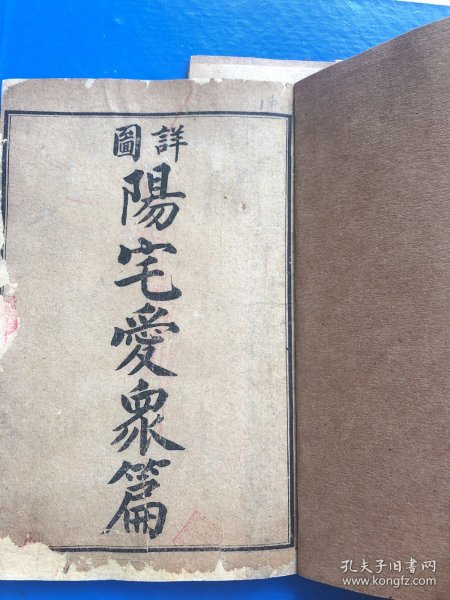 詳圖
陽宅愛衆篇
孔夫子旧书网
www.kongfz.com